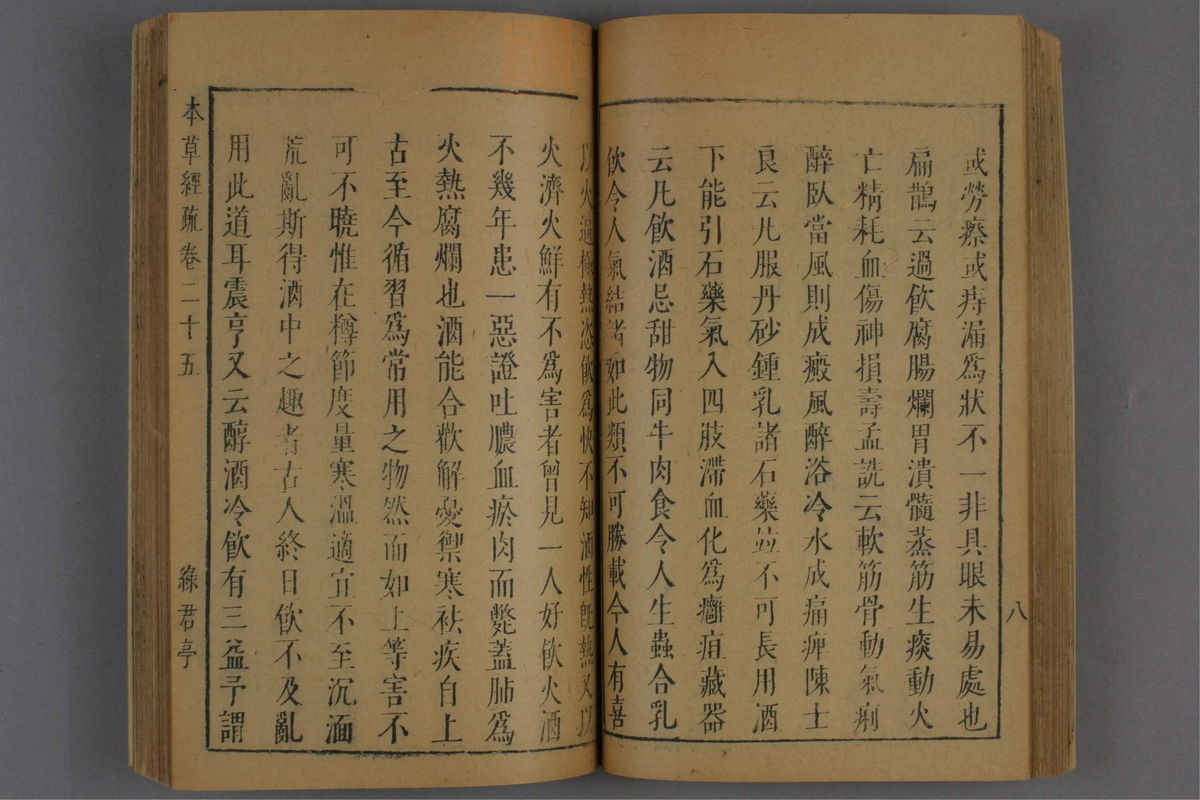 或勞瘵或痔漏爲狀不一非具眼未易處也
扁鵲云過飲腐腸爛胃潰髓蒸筋生痰動火
亡精耗血傷神損壽孟詵云軟筋骨動氣痢
醉臥當風則成癜風醉浴冷水成痛痺陳士
良云凡服丹砂鍾乳諸石藥並不可長用酒
下能引石藥氣入四肢滯血化爲癰疽藏器
云凡飲酒忌甜物同牛肉食令人生蟲合乳
飲令人氣結諸如此類不可勝載今人有喜
八
以火逼極熱恣飲爲快不知酒性旣熱又以
火濟火鮮有不爲害者曾見一人好飲火酒
不幾年患一惡證吐膿血瘀肉而斃蓋肺爲
火熱腐爛也酒能合歡解憂禦寒祛疾自上
古至今循習爲常用之物然而如上等害不
可不曉惟在樽節度量寒溫適宜不至沉湎
荒亂斯得酒中之趣者古人終日飲不及亂
用此道耳震亨又云醇酒冷飲有三益予謂
本草經疏卷二十五
綠君亭